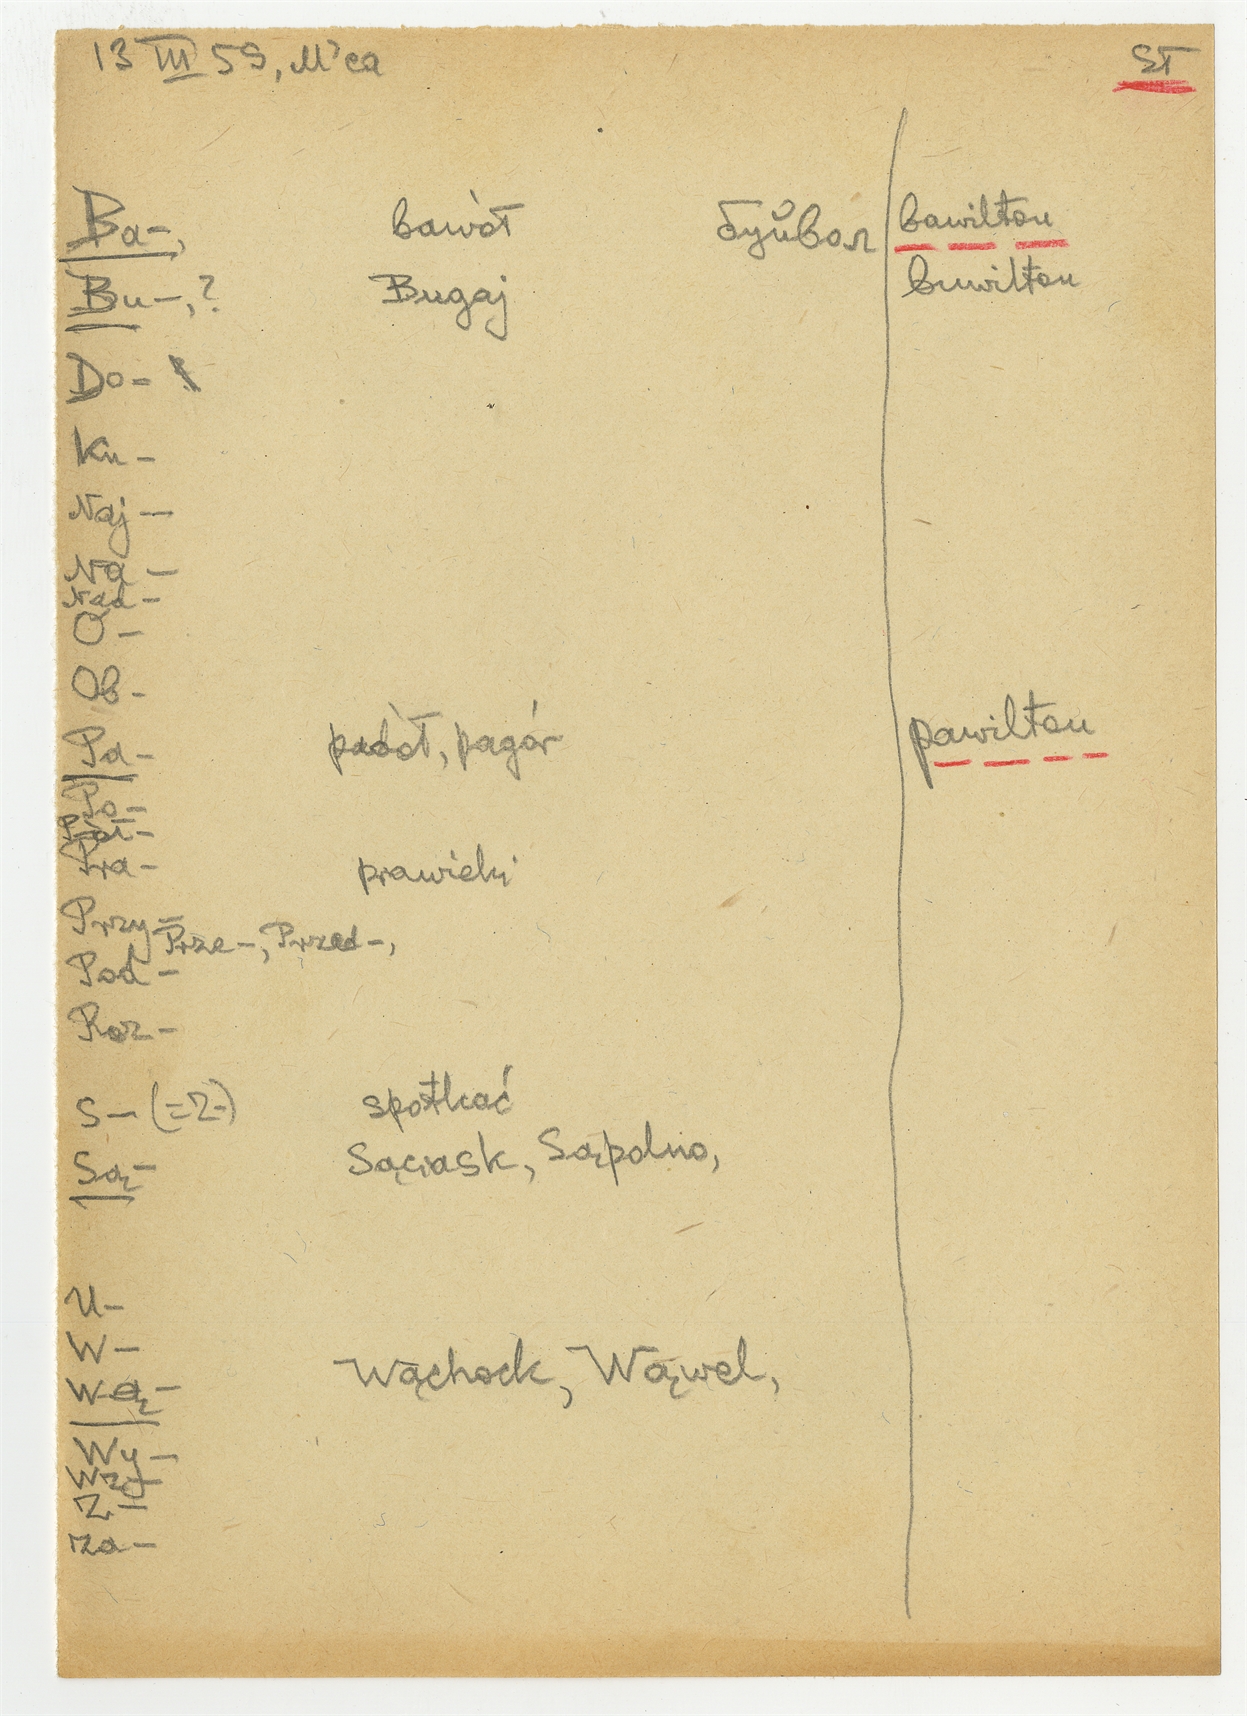 13 III 59, M'ca ST
Ba-, bawół буйвол bawiłtou
Bu-,? Bugaj buwiłtou
Do-
Ku-
Naj-
Na-
Nad-
O-
Ob-
Pa- padół, pagór pawiłtou
Po-
Pół-
Pra- prawieki
Przy-
Prze-, Przed-,
Pod-
Roz-
S- (=Z-) spotkać
Są- Sąciask, Sąpolno,
U-
W-
Wą- Wąchock, Wąwel,
Wy-
Wzy-
Z-
Za-